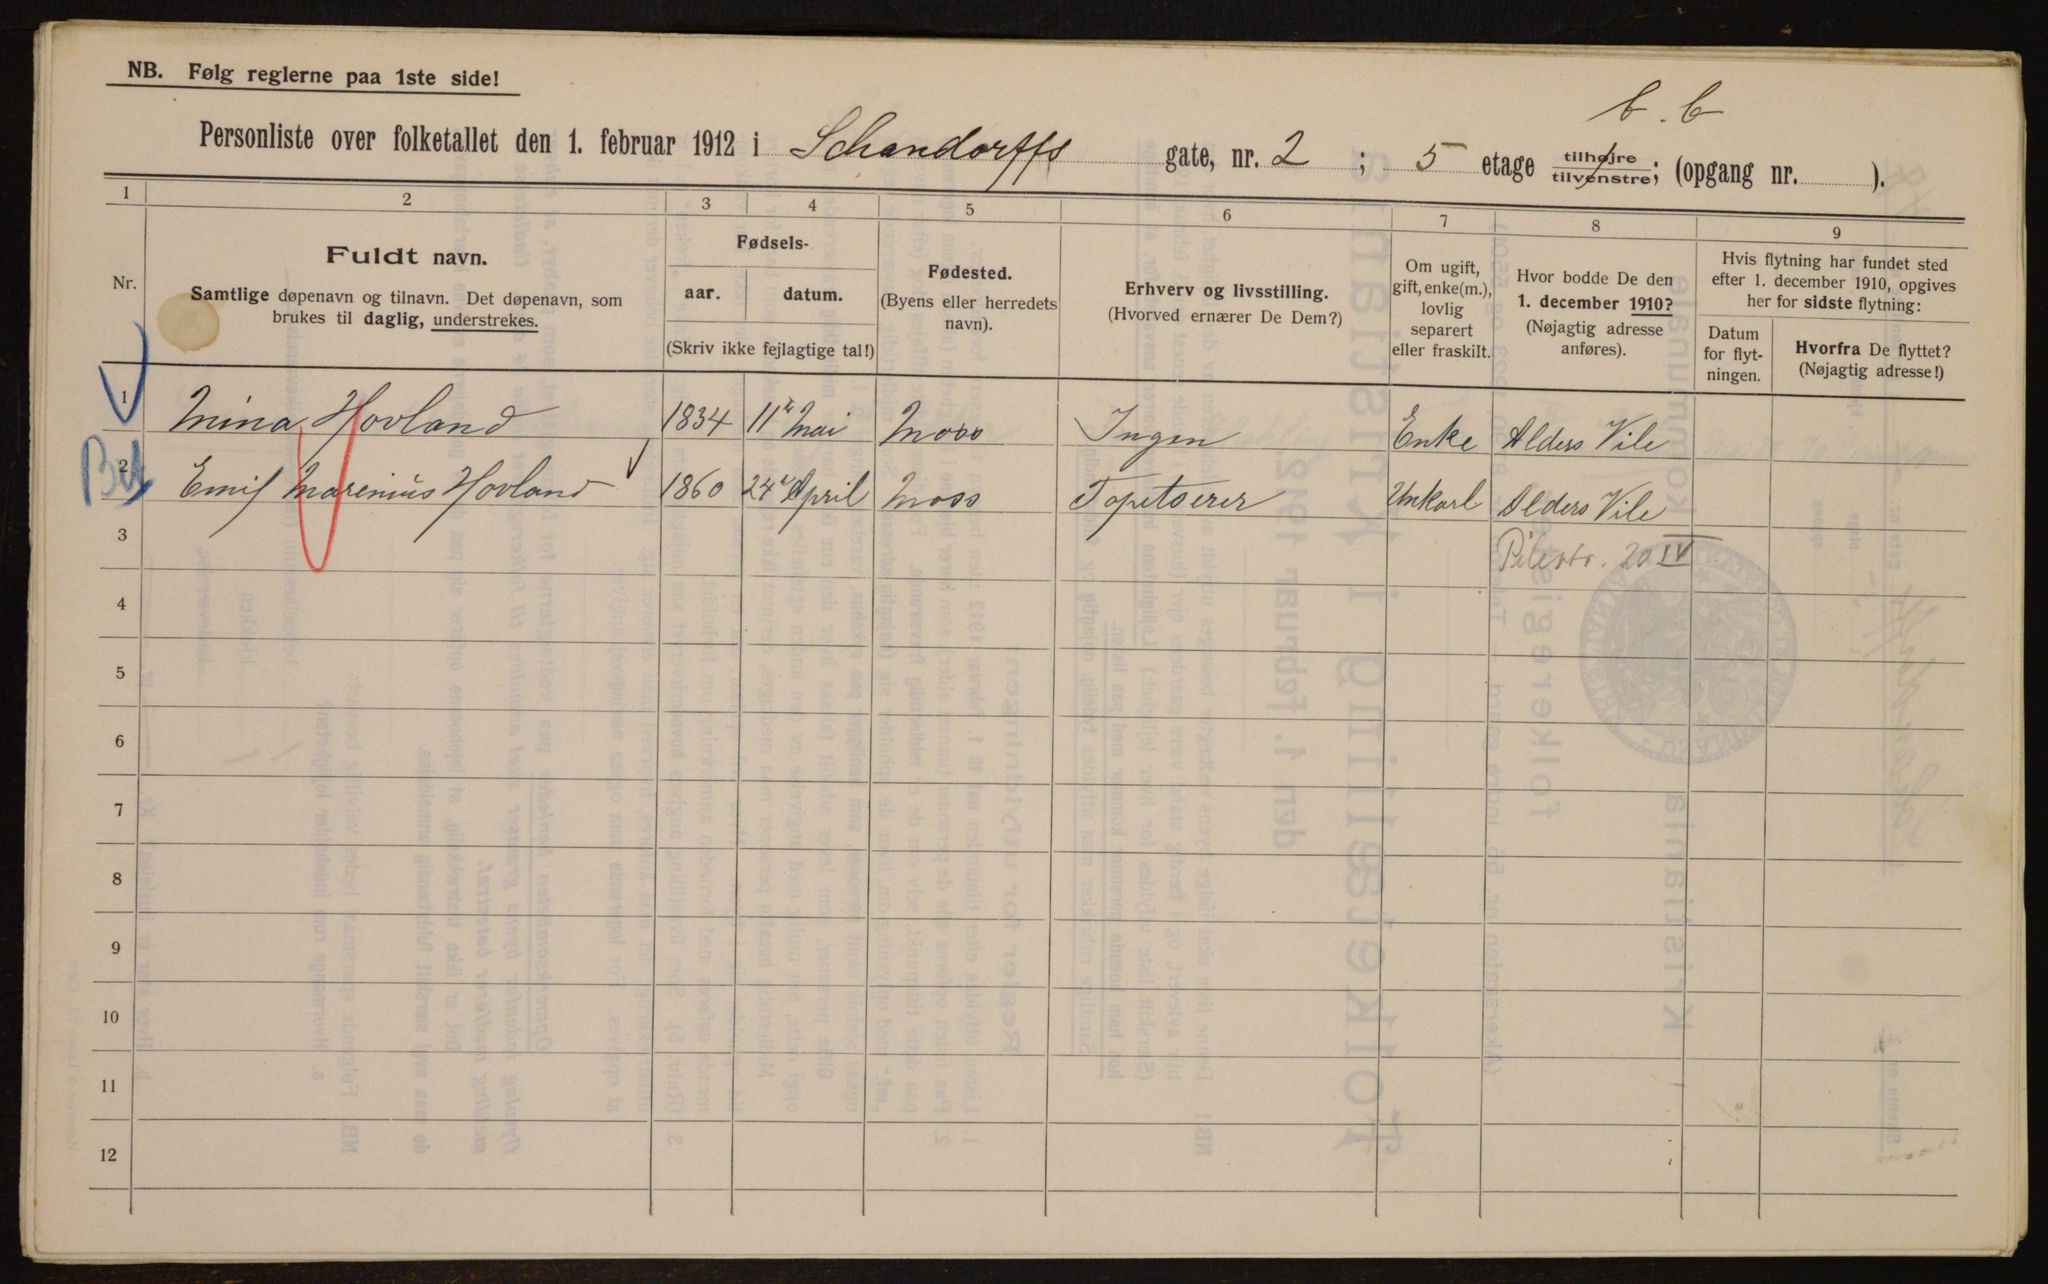 NB. Følg reglerne paa 1ste side!
b. b
Personliste over folketallet den 1. februar 1912 i Schandorffs gate, nr. 2 ; 5 etage tilhøjre/tilvenstre; (opgang nr. ).
1 2 3 4 5 6 7 8 9
Nr.
Fuldt navn.
Samtlige døpenavn og tilnavn. Det døpenavn, som
brukes til daglig, understrekes.
Fødsels-
aar. datum.
(Skriv ikke fejlagtige tal!)
Fødested.
(Byens eller herredets
navn).
Erhverv og livsstilling.
(Hvorved ernærer De Dem?)
Om ugift,
gift, enke(m.),
lovlig
separert
eller fraskilt.
Hvor bodde De den
1. december 1910?
(Nøjagtig adresse
anføres).
Hvis flytning har fundet sted
efter 1. december 1910, opgives
her for sidste flytning:
Datum
for flyt-
ningen.
Hvorfra De flyttet?
(Nøjagtig adresse!)
1 Mina Hovland 1834 11te Mai Moss Ingen Enke Alders Vile
2 Emil Marenius Hovland 1860 24 April Moss Tapetserer Unkarl Alders Vile
3 Pilestr. 20 IV
4
5
6
7
8
9
10
11
12